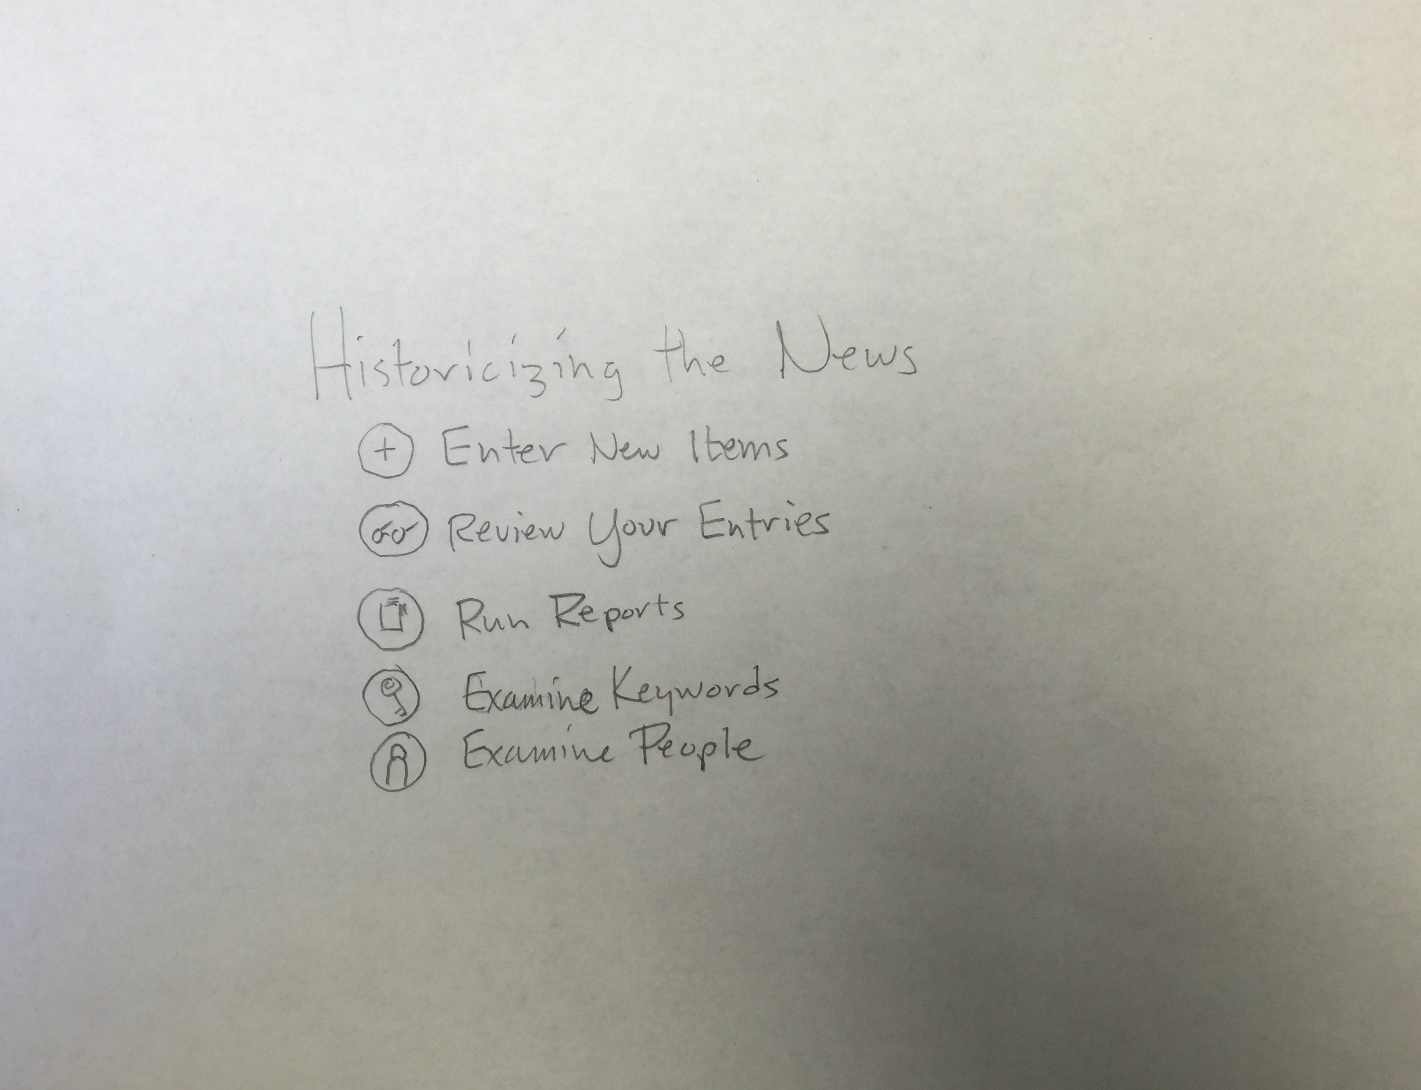 Historicizing the News
+ Enter New Items
Review Your Entries
Run Reports
Examine Keywords
Examine People